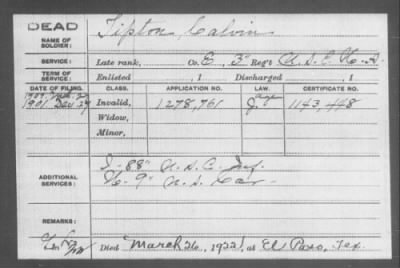 DEAD
NAME OF SOLDIER: Tipton, Calvin
SERVICE: Late rank, Co. E, 3" Reg't U.S.C. H.A.
TERM OF SERVICE: Enlisted , 1 Discharged , 1
DATE OF FILING. CLASS. APPLICATION NO. LAW. CERTIFICATE NO.
1901 Dec 27 Invalid, 1278,761 1143,448
Widow,
Minor,
ADDITIONAL SERVICES: I-88" U.S.C. Inf.
9" U.S. Cav
REMARKS:
Died March 26, 1922, at El Paso, Tex.